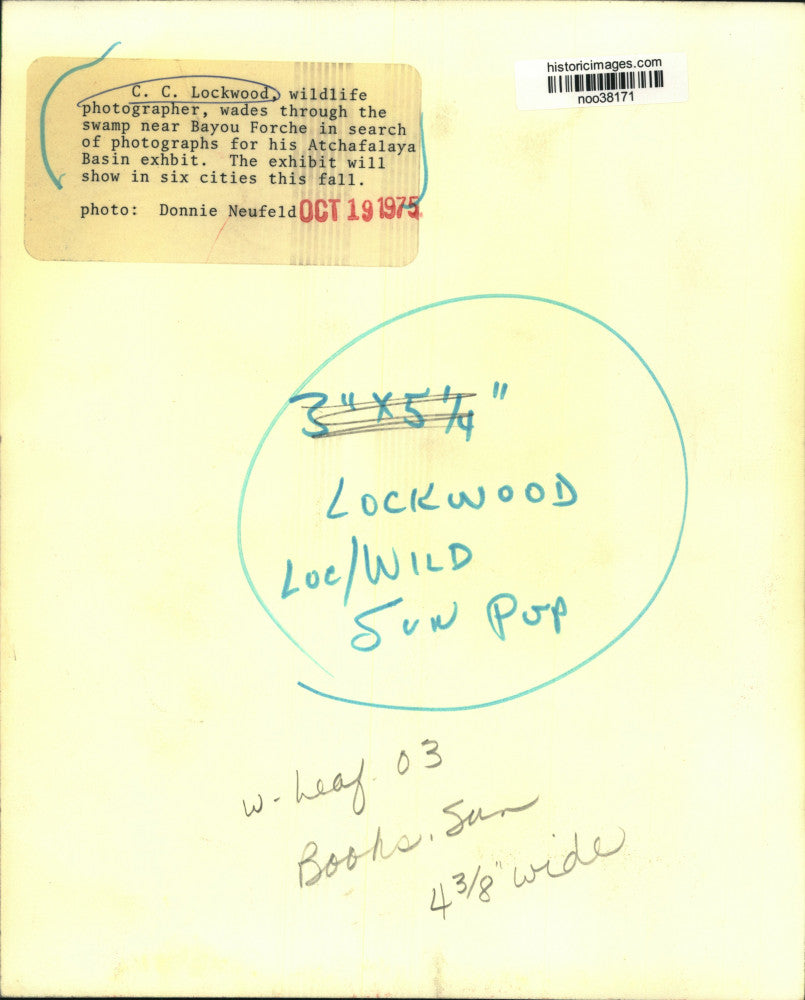 C. C. Lockwood, wildlife
photographer, wades through the
swamp near Bayou Forche in search
of photographs for his Atchafalaya
Basin exhbit. The exhibit will
show in six cities this fall.
photo: Donnie Neufeld OCT 19 1975
historicimages.com
noo38171
3" X 5 1/4"
LOCKWOOD
LOC/WILD
SUN PUP
w- heaf. 03
Books. Sun
4 3/8" wide